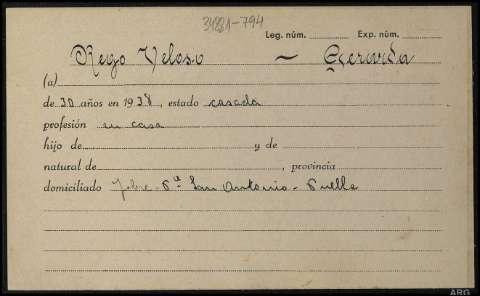 34881-794
Leg. núm. Exp. núm.
Rego Veloso — Gerarda
(a)
de 30 años en 1938, estado casada
profesión en casa
hijo de y de
natural de , provincia
domiciliado San Antonio -
ARG